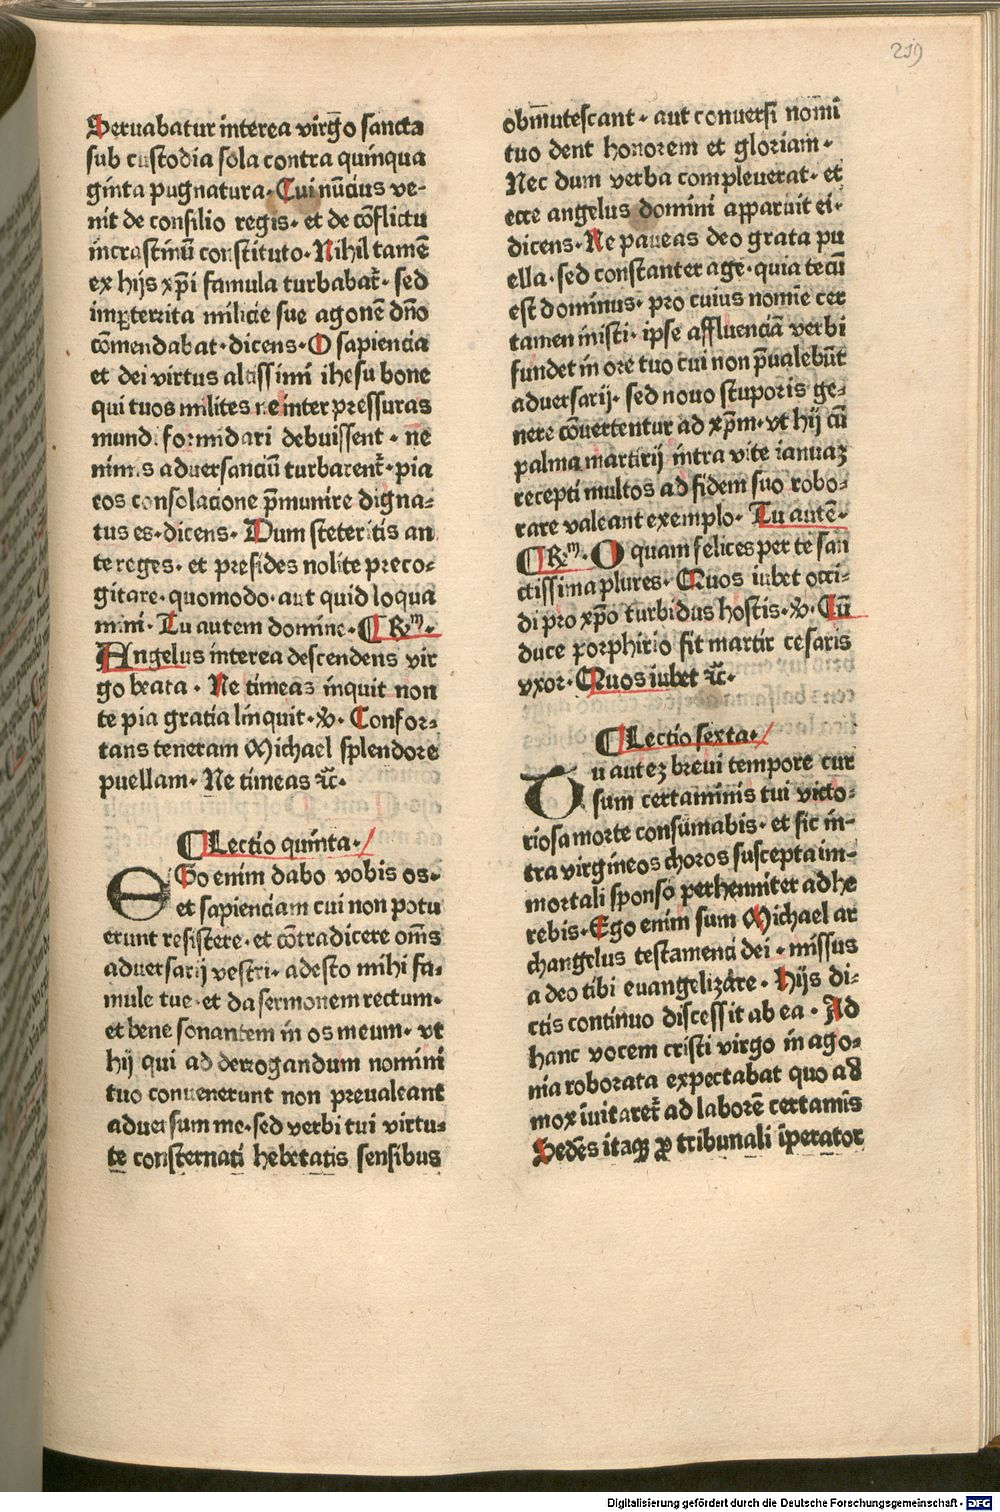 219
Seruabatur interea virgo̅ sancta
sub custodia sola contra quinqua
ginta pugnatura· Cui nu̅cius ve-
nit de consilio regis· et de co̅flictu
incrastinu̅ constituto· Nihil tame̅
ex hijs xp̅i famula turbabat᷑· sed
imꝑterrita milicie sue agone̅ dn̅o
co̅mendabat· dicens· O sapiencia
et dei virtus altissimi ihesu bone
qui tuos milites ne inter pressuras
mundi formidari debuissent · ne̅
nimis aduersanciu̅ turbarent᷑· pia
eos consolacione p̅munire digna⸗
tus es· dicens· Dum steteritis an
te reges· et presides nolite preco⸗
gitare· quomodo· aut quid loqua
mini· Tu autem domine· ¶ Rm·
Angelus interea descendens vir
go beata · Ne timeas inquit non
te pia gratia linquit· ℣· Confor⸗
tans teneram Michael splendore
puellam· Ne timeas ⁊c̅·
¶ Lectio quinta·
Ego enim dabo vobis os·
et sapienciam cui non potu
erunt resistere· et co̅tradicere om̅s
aduersarij vestri· adesto mihi fa⸗
mule tue· et da sermonem rectum·
et bene sonantem in os meum· vt
hij qui ad derrogandum nomini
tuo conuenerunt non preualeant
aduersum me· sed verbi tui virtu⸗
te consternati hebetatis sensibus
obm̅utescant · aut conuersi nomi̅
tuo dent honorem et gloriam·
Nec dum verba compleuerat· et
ecce angelus domini apparuit ei·
dicens· Ne paueas deo grata pu
ella· sed constanter age· quia tecu̅
est dominus· pro cuius nomi̅e cer
tamen inisti· ipse affluencia̅ verbi
fundet in ore tuo cui non p̅ualebu̅t
aduersarij· sed nouo stuporis ge⸗
nere co̅uertentur ad xp̅m· vt hij cu̅
palma martirij intra vite ianuaꝫ
recepti multos ad fidem suo robo⸗
rare valeant exemplo· Tu aute̅·
¶ Rm· O quam felices per te san
ctissima plures· Quos iubet occi⸗
di pro xp̅o turbidus hostis· ℣· Cu̅
duce porphirio fit martir cesaris
vxor· Quos iubet ⁊c̅·
¶ Lectio sexta·
Tu auteꝫ breui tempore cur
sum certaminis tui victo⸗
riosa morte consu̅mabis· et sic in⸗
tra virgineos choros suscepta im⸗
mortali sponso perhenniter adhe
rebis· Ego enim sum Michael ar
changelus testamenti dei · missus
a deo tibi euangeliza̅re· Hijs di⸗
ctis continuo discessit ab ea · Ad
hanc vocem cristi virgo in ago⸗
nia roborata expectabat quo ad
mox i̅uitaret᷑ ad labore̅ certamis̅
Sede̅s itaqꝫ ꝓ tribunali i̅perator
Digitalisierung gefördert durch die Deutsche Forschungsgemeinschaft - DFG